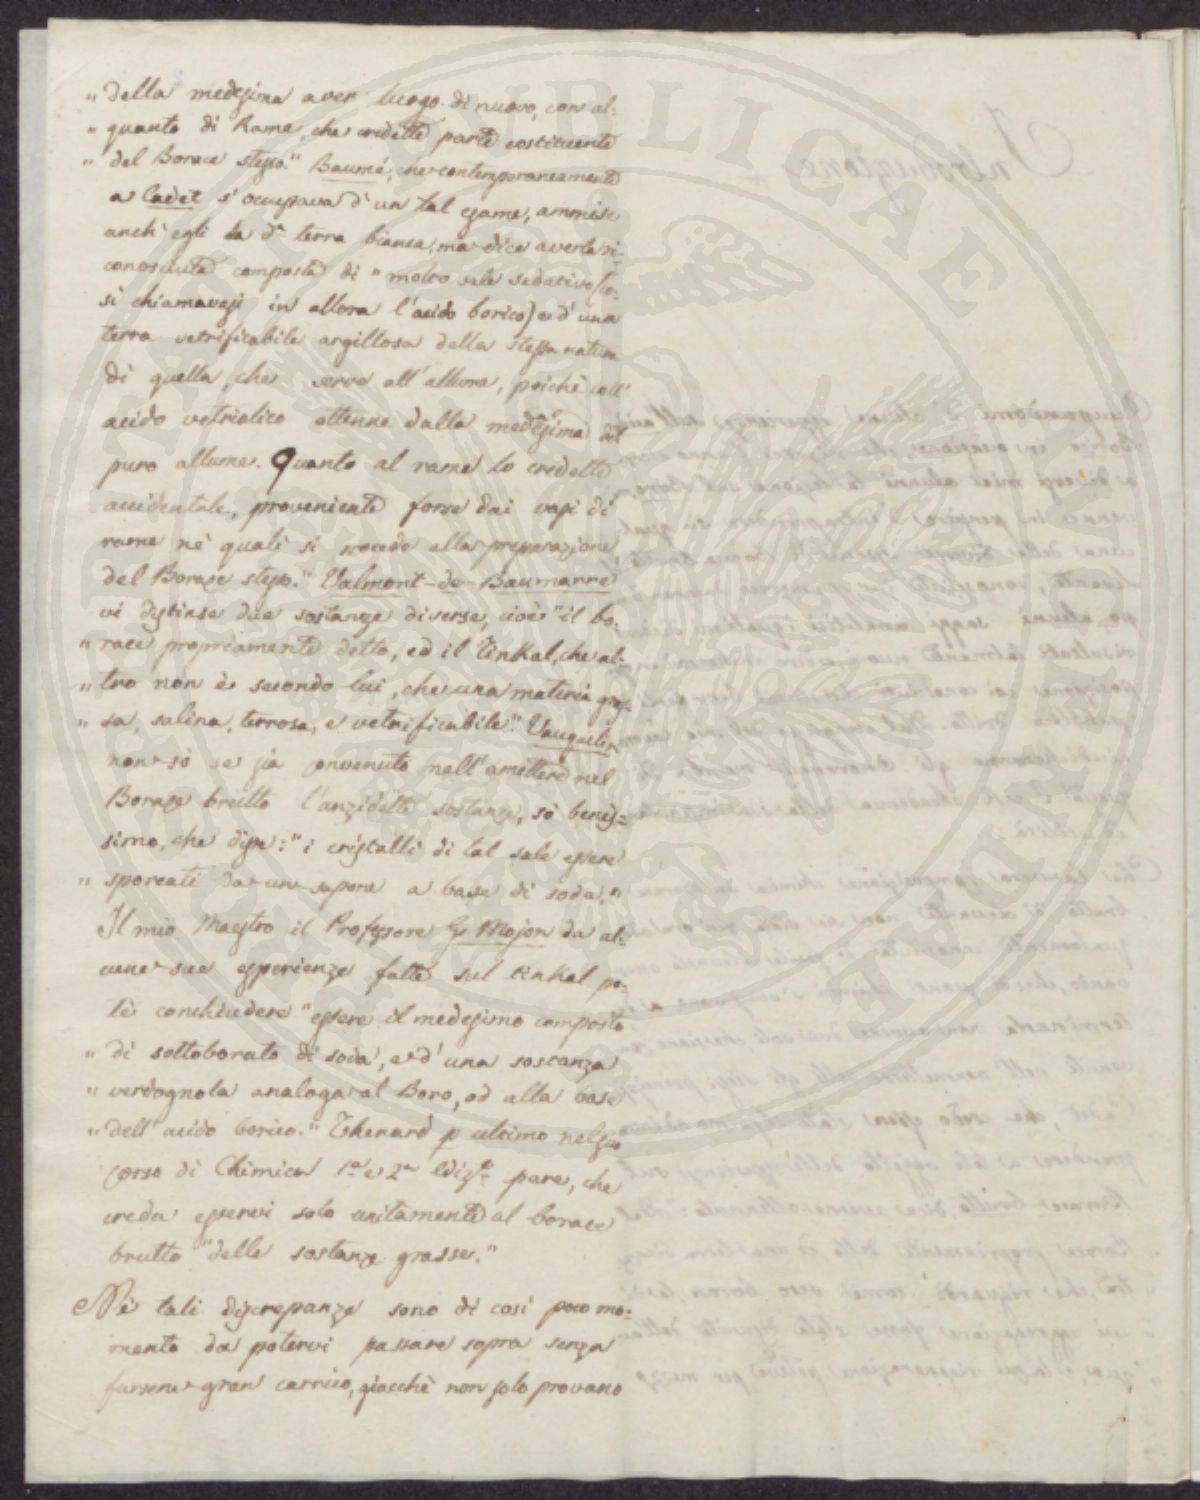 „ della medesima aver luogo di nuovo, con al-
„ quanto di Rame, che credette parte costituente
„ del Borace stesso." Baumé, che contemporaneamente
a Cadet s'occupava d'un tal esame, ammise
anch'egli la dª terra bianca, ma dice averla ri-
conosciuta composta di "molto sale sedativo (co-
sì chiamavasi in allora l'acido borico) e d'una
terra vetrificabile argillosa della stessa natura
di quella, che serve all'allume, poichè coll'
acido vetriolico ottenne dalla medesima del
puro allume. Quanto al rame lo credette
accidentale, proveniente forse dai vasi di
rame nè quali si procede alla preparazione
del Borace stesso." Valmont-de-Baumarre
vi distinse due sostanze diverse, cioè "il bo-
„ race propriamente detto, ed il Tinkal, che al-
„ tro non è secondo lui, che una materia gras-
„ sa, salina, terrosa, e vetrificabile." Vauquelin
non sò se sia convenuto nell'amettere nel
Borace brutto l'anzidette sostanze, sò benis-
simo, che disse: "i cristalli di tal sale essere
„ sporcati da un sapone a base di soda."
Il mio Maestro il Professore G. Mojon da al-
cune sue esperienze fatte sul tinkal po-
tè conchiudere "essere il medesimo composto
„ di sottoborato di soda, e d'una sostanza
„ verdognola analoga al Boro, od alla base
„ dell'acido borico." Thenard p ultimo nel suo
Corso di Chimica 1ª e 2ª Edizᵉ pare, che
creda esservi solo unitamente al borace
brutto "delle sostanze grasse."
Nè tali discrepanze sono di così poco mo-
mento da potervi passare sopra senza
farsene gran carrico, giacchè non solo provano